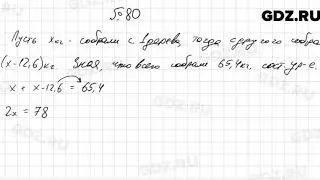 GDZ.RU
№ 80
Пусть x кг - собрали с 1 дерева, тогда с другого собра
(x-12,6) кг. Зная, что всего собрали 65,4 кг. сост. ур-е.
x + x - 12,6 = 65,4
2x = 78
GDZ.RU